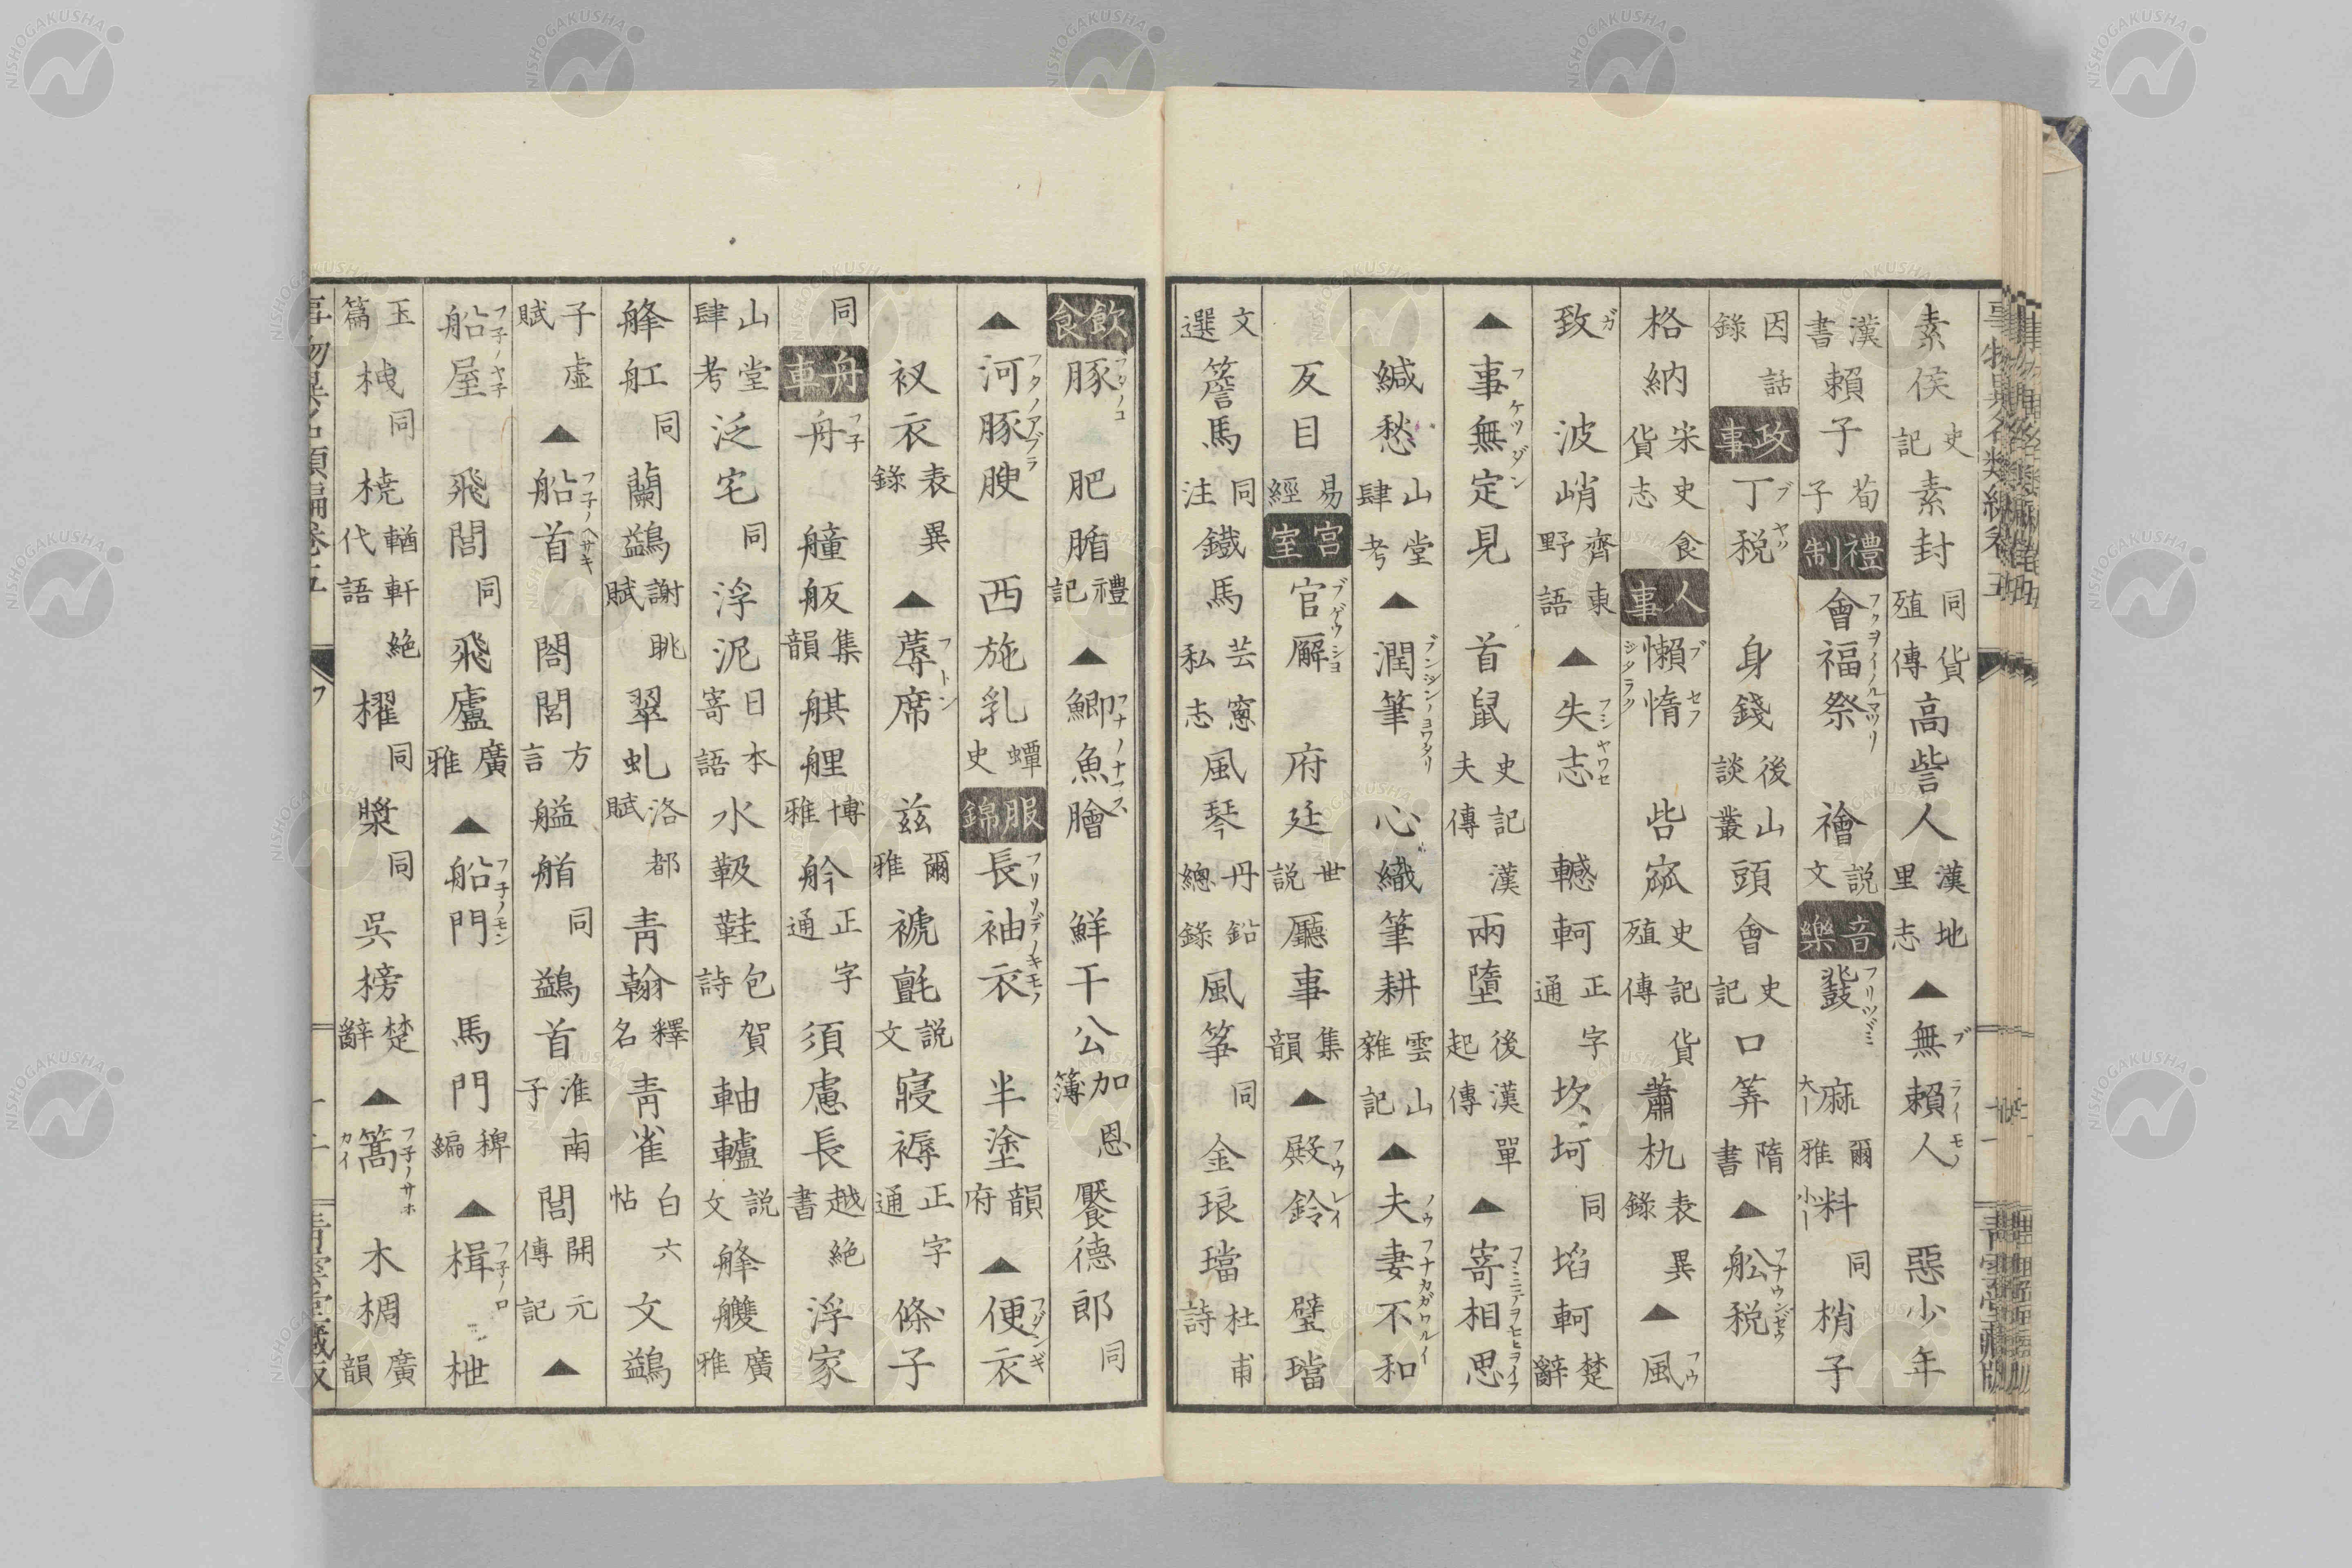 素侯史記素封同貨殖傳高訾人漢地里志▲無賴人ブライモノ惡少年
漢書賴子荀子禮制會福祭フクヲイノルマツリ禬說文音樂鼗フリツヾミ麻大ー爾雅料小ー同梢子
因話錄政事丁稅ブヤク身錢後山談叢頭會史記口筭隋書▲舩稅フナウンゼウ
格納米史食貨志人事懶惰ブセフシダラク呰窳史記貨殖傳蕭朹表異錄▲風フウ
致ガ波峭齊東野語▲失志フシヤワセ轗軻正字通坎坷同埳軻楚辭
▲事無定見フケツダン首鼠史記夫傳兩墮後漢單起傳▲寄相思フミニテヲモヒヲイフ
緘愁山堂肆考▲潤筆ブンシンノヨワタリ心織筆耕雲山雜記▲夫妻不和ノウフナカガワルイ
反目易經宮室官廨ブゲウシヨ府廷世說廳事集韻▲殿鈴フウレイ璧璫
文選簷馬同注鐵馬芸窻私志風琴丹鉛總錄風筝同金琅璫杜甫詩
飲食豚フタノコ肥腯禮記▲鯽魚膾フナノナマス鮮于公加恩簿饜德郎同
▲河豚腴フクノアブラ西施乳蟫史服錦長袖衣フリソデノキモノ半塗韻府▲便衣フダンギ
衩衣表異錄▲蓐席フトン茲爾雅褫氈說文寢褥正字通絛子
同舟車舟フ子艟舨集韻艉艃博雅舲正字通須慮越絕書長浮家
山堂肆考泛宅同浮泥日本寄語水靸鞋包賀詩軸轤說文艂艭廣雅
艂舡同蘭鷁謝眺賦翠虬洛都賦青翰釋名青雀白六帖文鷁
子虛賦▲船首フ子ノヘサキ閤閭方言艗艏同鷁首淮南子閭開元傳記▲
船屋フ子ノヤ子飛閭同飛廬廣雅▲船門フ子ノモン馬門稗編▲楫フ子ノロ枻
玉篇栧同橈輶軒絕代語櫂同槳同吳榜楚辭▲篙フ子ノサホカイ木椆廣韻